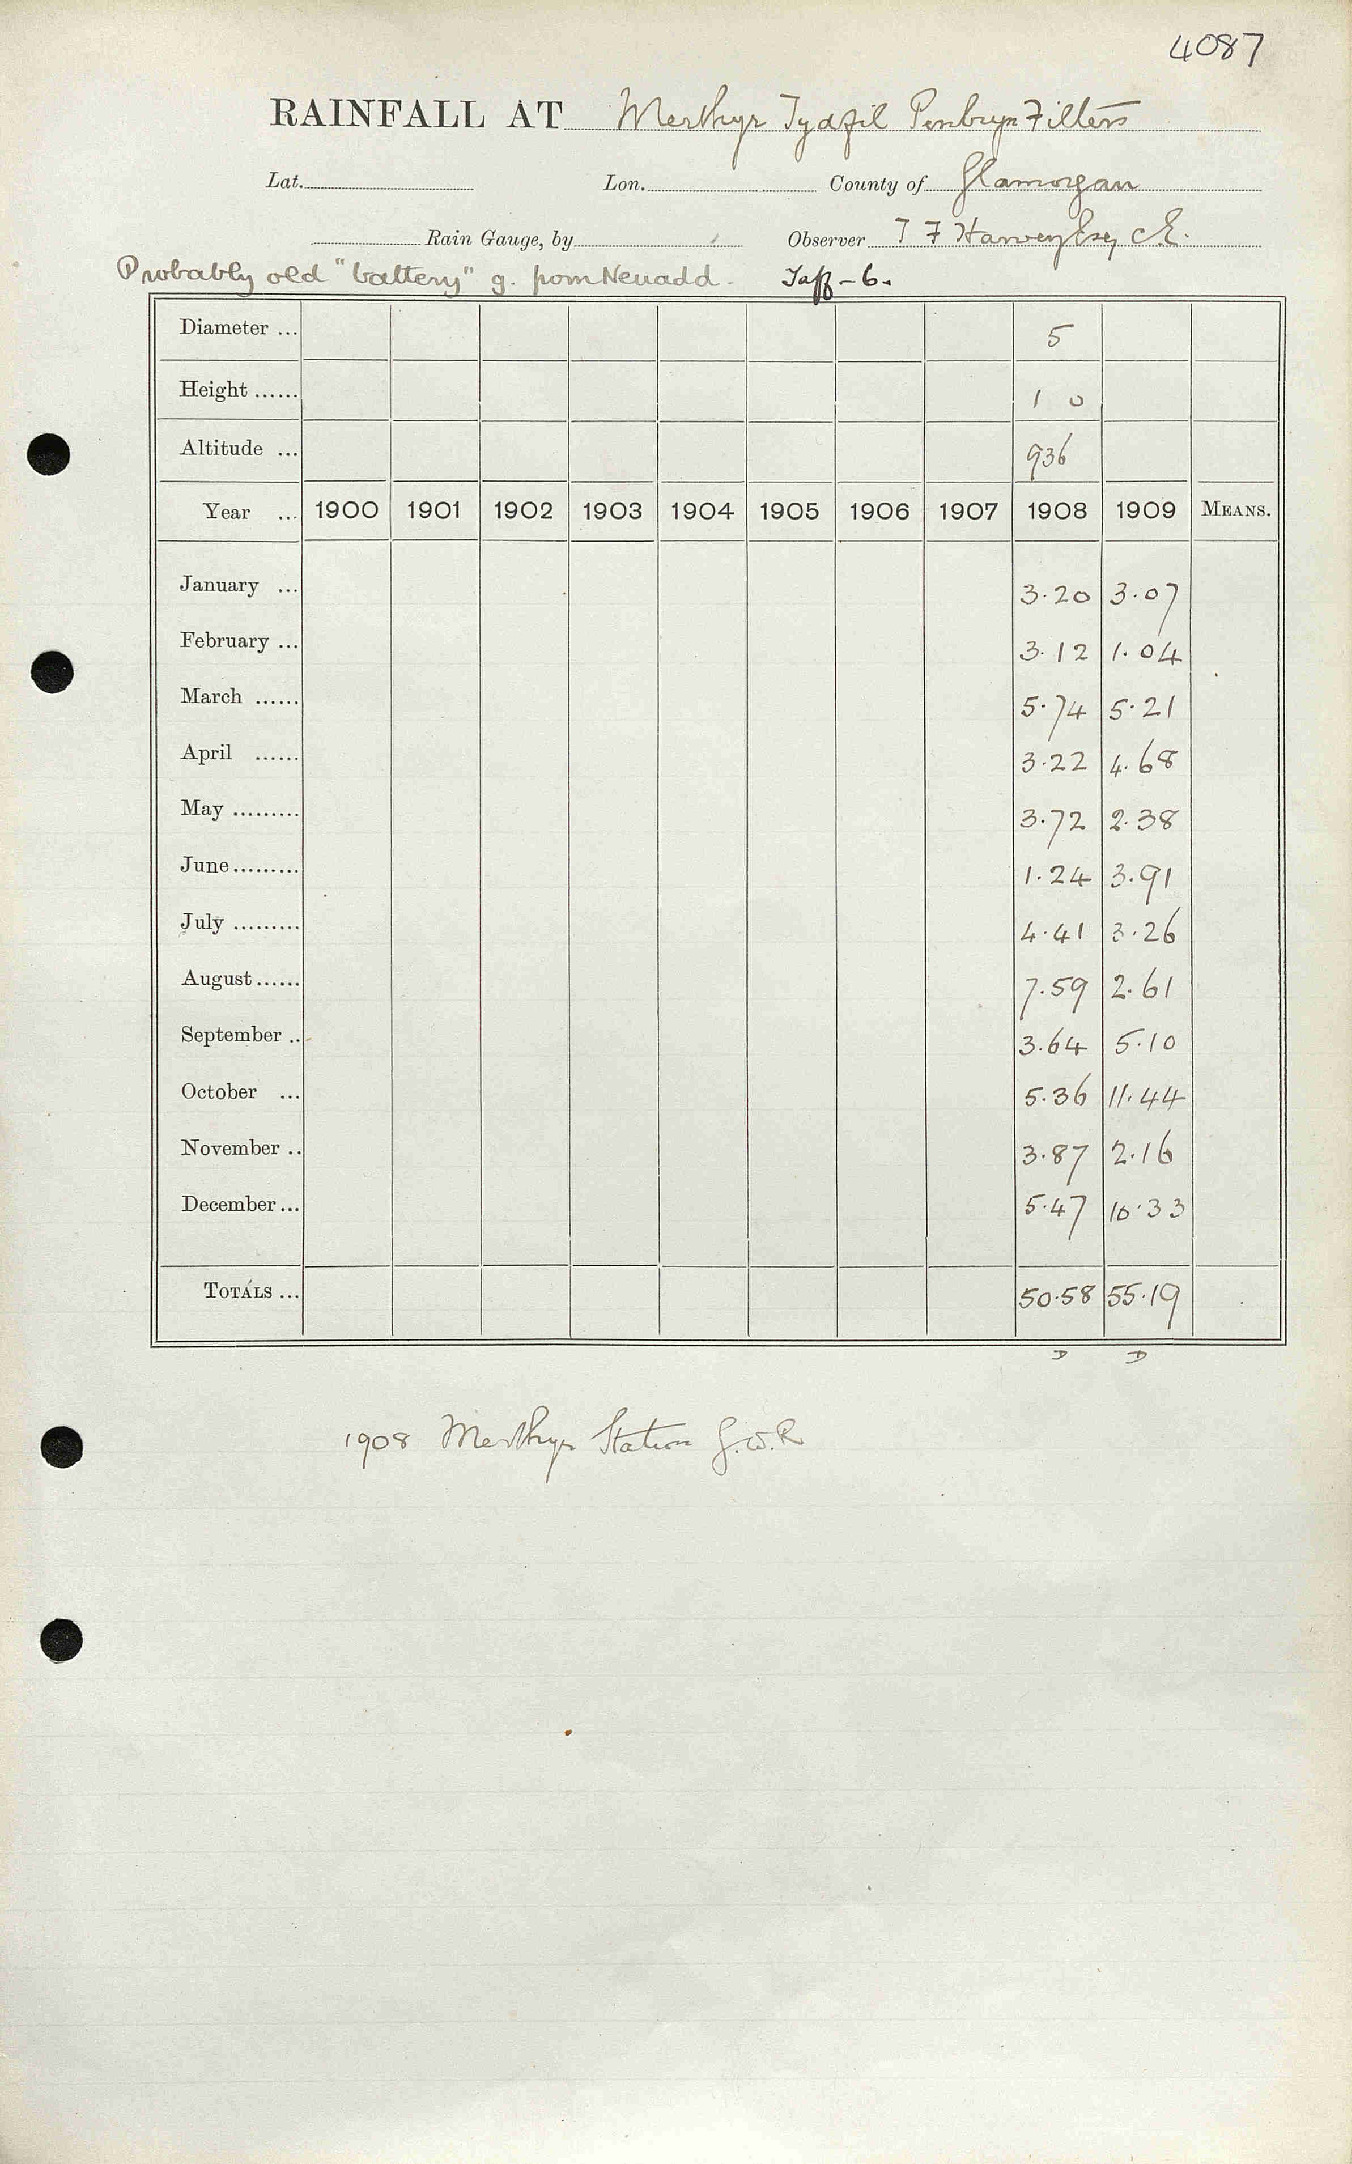 4087
RAINFALL AT Merthyr Tydfil Penbryn Filters
Lat. Lon. County of Glamorgan
Rain Gauge, by Observer T F Harvey Esq C.E.
Probably old "battery" g. from Neuadd. Taff-6.
Diameter ... 5
Height ...... 1 0
Altitude ... 936
Year ... 1900 1901 1902 1903 1904 1905 1906 1907 1908 1909 MEANS.
January ... 3.20 3.07
February ... 3.12 1.04
March ...... 5.74 5.21
April ...... 3.22 4.68
May ......... 3.72 2.38
June......... 1.24 3.91
July ......... 4.41 3.26
August...... 7.59 2.61
September .. 3.64 5.10
October ... 5.36 11.44
November .. 3.87 2.16
December... 5.47 10.33
TOTALS ... 50.58 55.19
D D
1908 Merthyr Station G.W.R